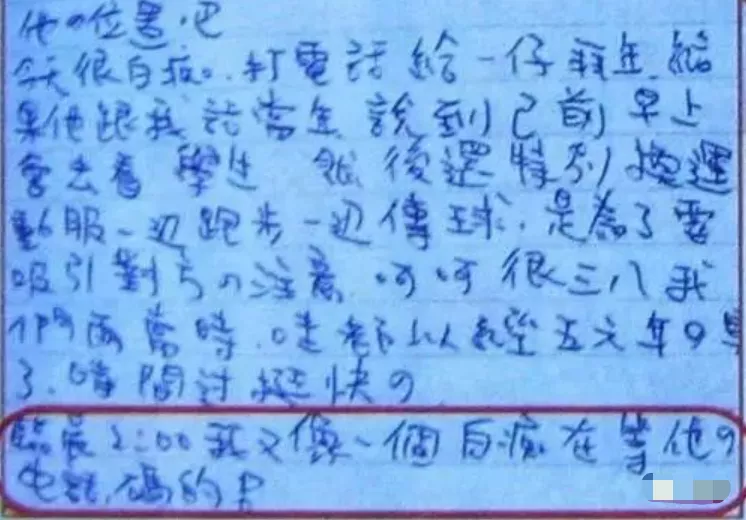 他の位置吧
今天很白痴. 打電話給一仔聊天 結
果他跟我話當年 說到己前早上
會去看 學生 然後還特別換運
動服一边跑步一边傳球. 是為了要
吸引對方の注意 呵呵很三八我
們兩當時. 哇都以經是五六年の事
了. 時間过挺快の
臨晨2:00我又像一個白痴在等他の
电話. 媽的